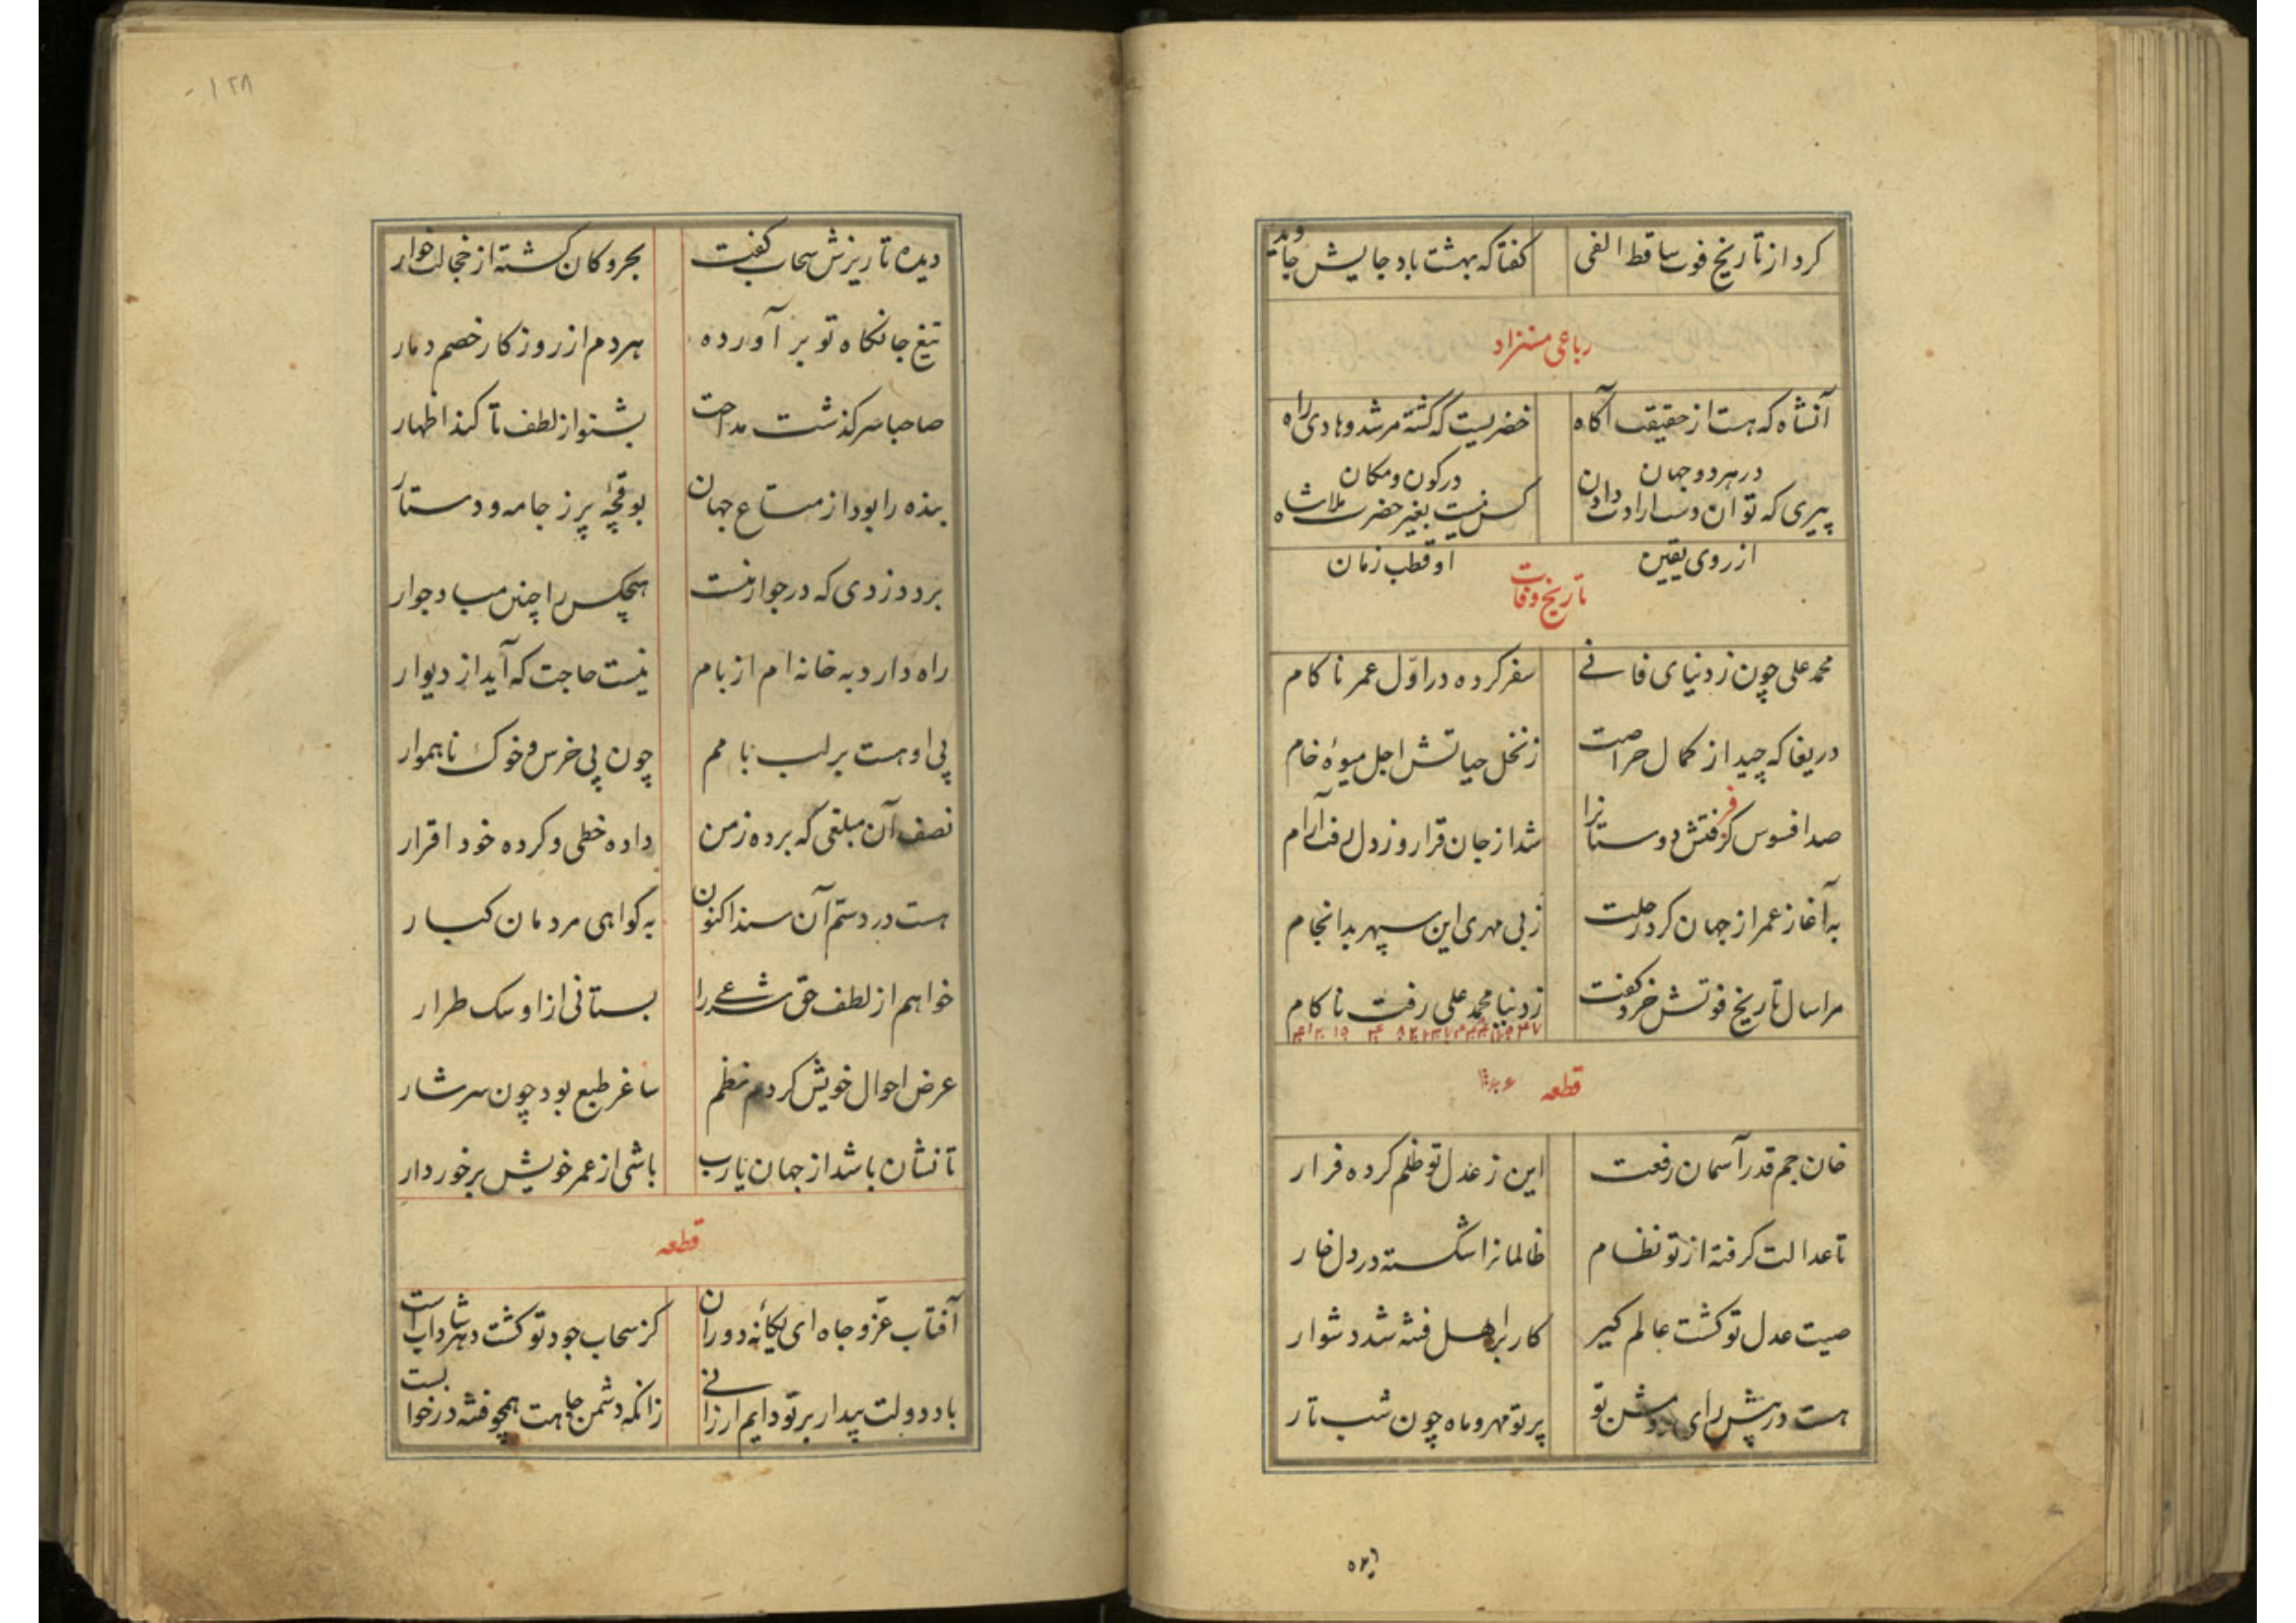 کرد از تاریخ فوت ساقط الفی گفتا که بهشت باد جایش جاوید
رباعی مستزاد
آنشاه که هست از حقیقت آگاه خضریست که گشته مرشد و هادی راه
در هر دو جهان در کون و مکان
پیری که توان دست ارادت دادن کس نیست بغیر حضرت ملا شاه
از روی یقین او قطب زمان
تاریخ وفات
محمد علی چون ز دنیای فانے سفر کرده در اوّل عمر ناکام
دریغا که چید از کمال حراصت ز نخل حیاتش اجل میوهٔ خام
صد افسوس کز فرقتش دوستانرا شد از جان قرار و ز دل رفت آرام
به آغاز عمر از جهان کرد رحلت ز بی مهری این سپهر بد انجام
مرا سال تاریخ فوتش خرد گفت ز دنیا محمد علی رفت ناکام
قطعه
خان جم قدر آسمان رفعت این ز عدل تو ظلم کرده فرار
تا عدالت گرفته از تو نظام ظالمانرا شکسته در دل خار
صیت عدل تو گشت عالم گیر کار بر اهل فتنه شد دشوار
هست در پیش رای روشن تو پرتو مهر و ماه چون شب تار
دیده
۱۲۸
دیده تا ریزش سحاب کفت بحر و کان گشته از خجالت خوار
تیغ جانکاه تو بر آورده هر دم از روزکار خصم دمار
صاحبا سرکذشت مداحت بشنو از لطف تا کند اظهار
بنده را بود از متاع جهان بوقچهٔ پر ز جامه و دستار
برد دزدی که در جوار منست هیچکس را چنین مباد جوار
راه دارد به خانه ام از بام نیست حاجت که آید از دیوار
پی او هست بر لب بامم چون پی خرس و خوک ناهموار
نصف آن مبلغی که برده ز من داده خطی و کرده خود اقرار
هست در دستم آن سند اکنون به گواهی مردمان کبار
خواهم از لطف حق شرعے را بستانی از او سک طرار
عرض احوال خویش کردم نظم ساغر طبع بود چون سرشار
تا نشان باشد از جهان یارب باشی از عمر خویش برخوردار
قطعه
آفتاب عزّ و جاه ای یگانهٔ دوران کز سحاب جود تو کشت دهر شادابست
باد دولت بیدار بر تو دایم ارزانے زانکه دشمن جاهت همچو فتنه در خوابست